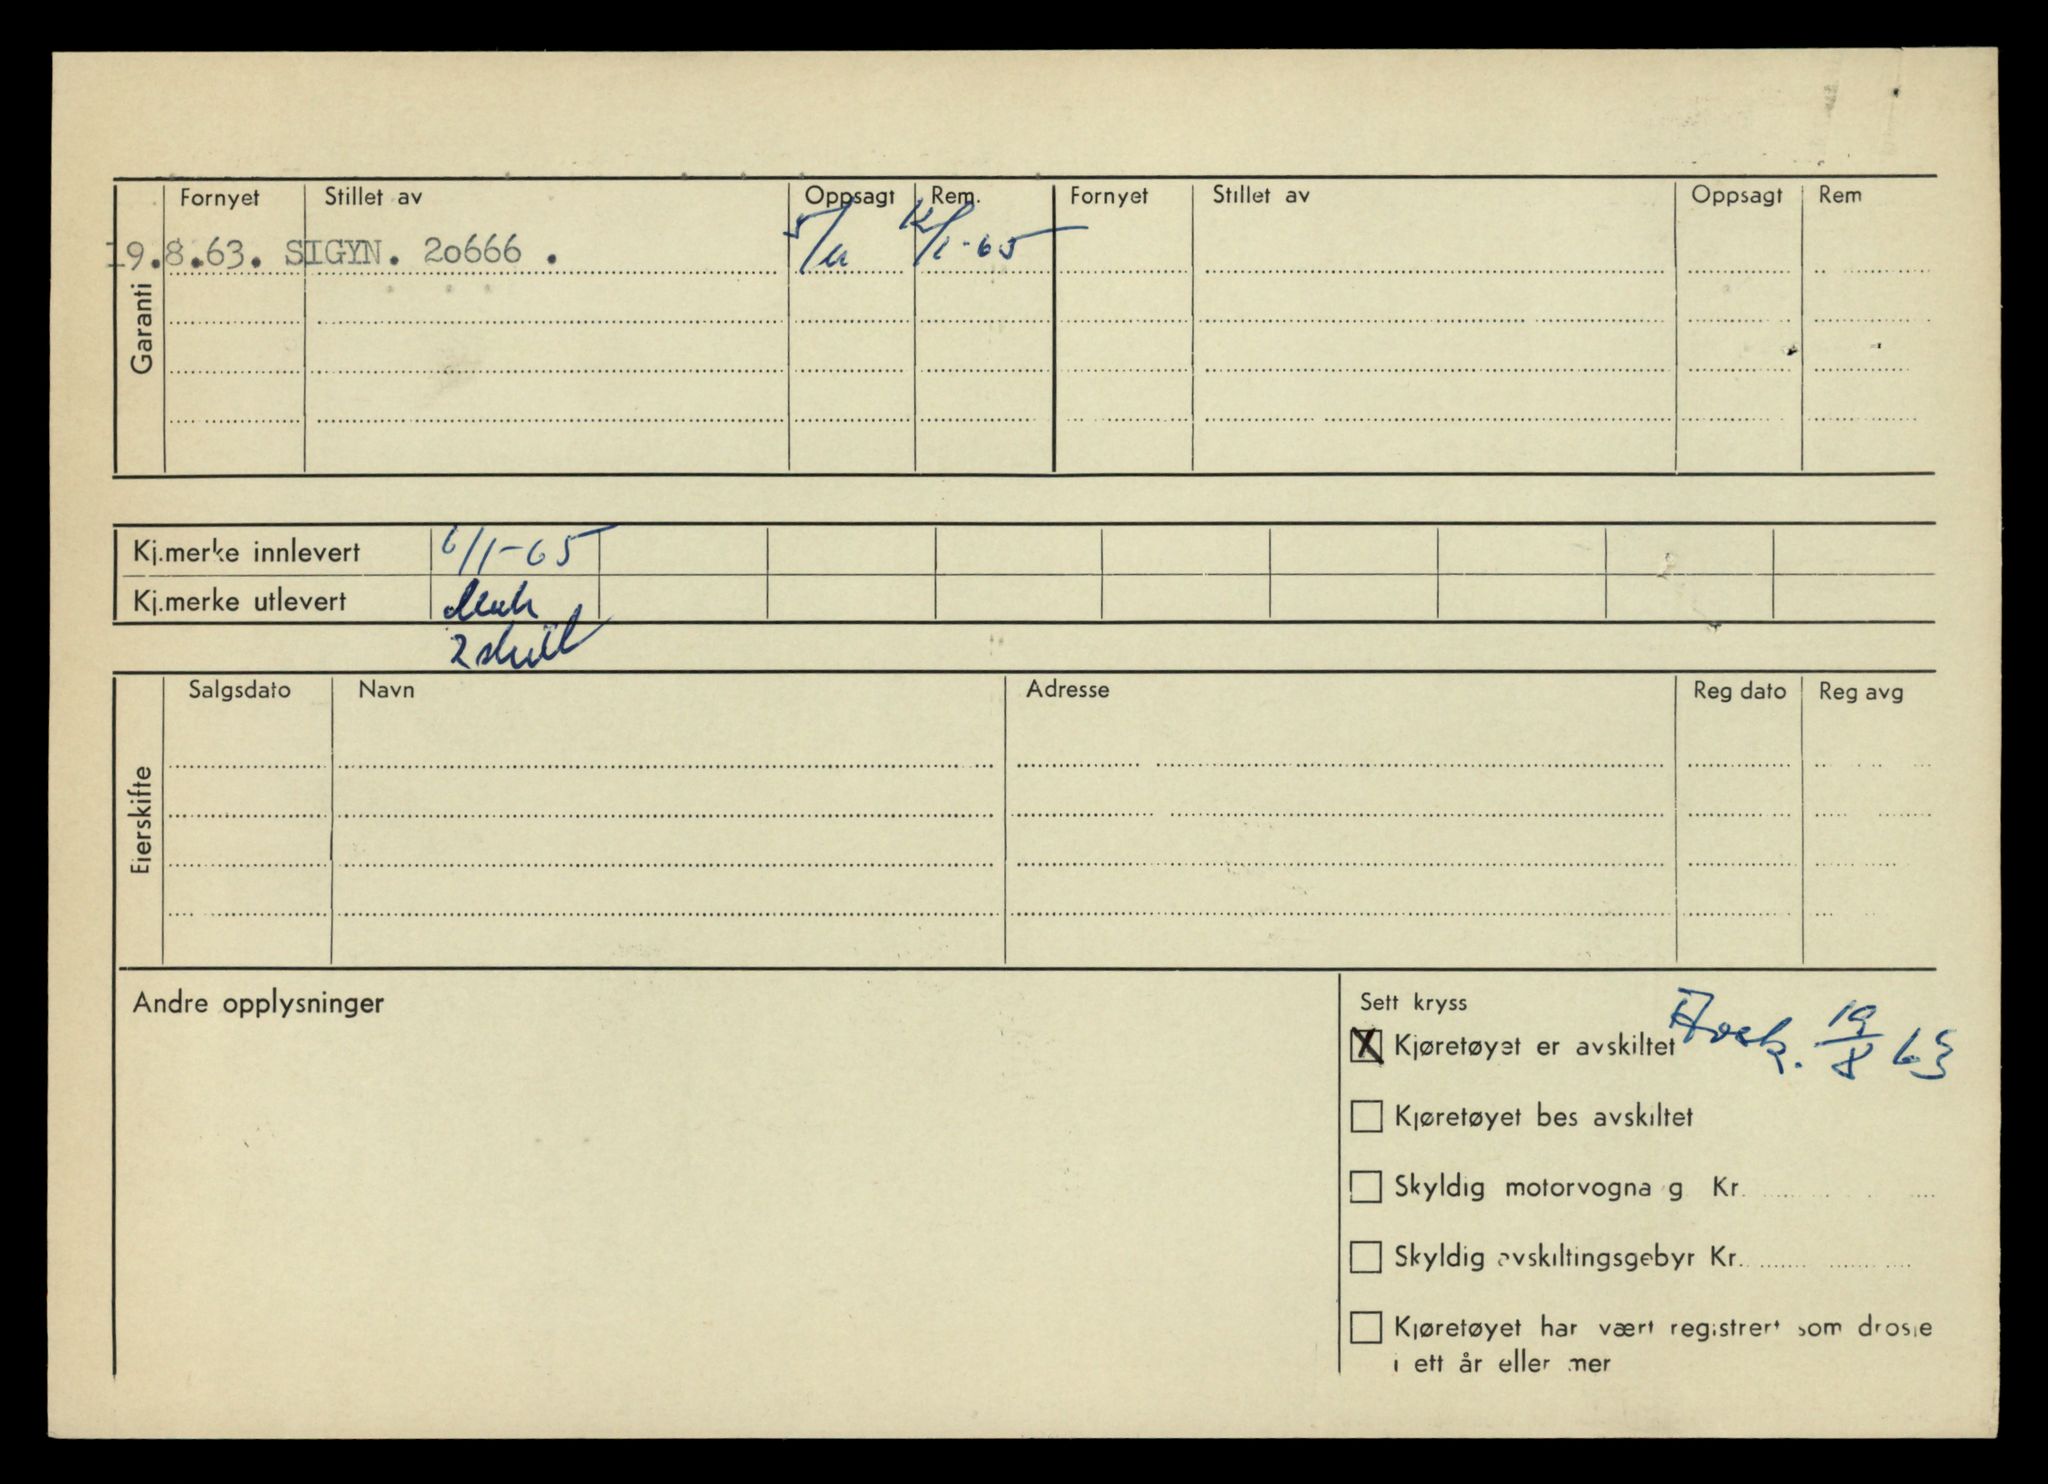 Garanti
Fornyet Stillet av Oppsagt Rem. Fornyet Stillet av Oppsagt Rem
19.8.63. SIGYN. 20666 . 5/11 12/1-65
Kj.merke innlevert 6/1-65
Kj.merke utlevert
2 skilt
Eierskifte
Salgsdato Navn Adresse Reg dato Reg avg
Andre opplysninger
Sett kryss
X Kjøretøyet er avskiltet Avsk. 19/8 63
Kjøretøyet bes avskiltet
Skyldig motorvogna g Kr.
Skyldig avskiltingsgebyr Kr.
Kjøretøyet har vært registrert som drosje
i ett år eller mer